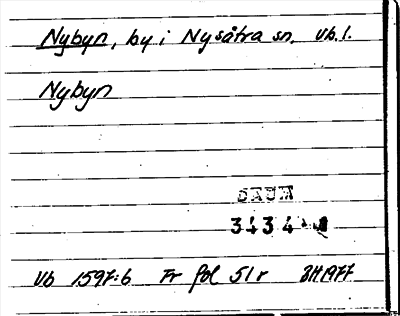 Nybyn, by i Nysåtra sn. Vb. l.
Nybyn
DAUM
3434
Vb 1597:6 Fr fol 51 r BH 1977